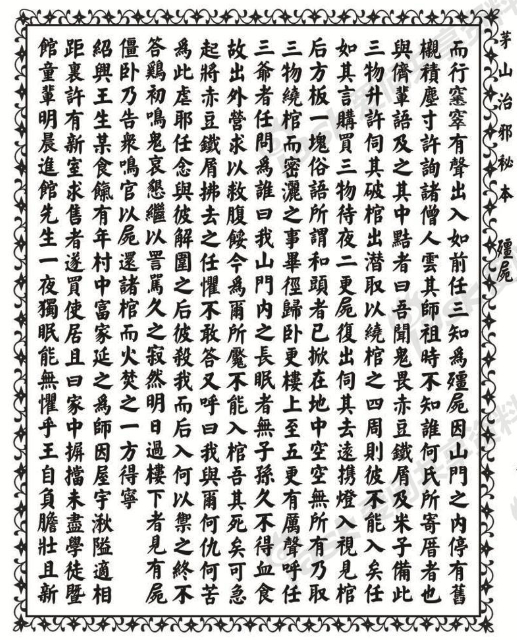 茅山治邪秘本　殭屍
而行窸窣有聲出入如前任三知爲殭屍因山門之內停有舊
櫬積塵寸許詢諸僧人雲其師祖時不知誰何氏所寄厝者也
與儕輩語及之其中黠者曰吾聞鬼畏赤豆鐵屑及米子備此
三物升許伺其破棺出潜取以繞棺之四周則彼不能入矣任
如其言購買三物待夜二更屍復出伺其去遠携燈入視見棺
后方板一塊俗語所謂和頭者已掀在地中空空無所有乃取
三物繞棺而密灑之事畢徑歸卧更樓上至五更有厲聲呼任
三爺者任問爲誰曰我山門內之長眠者無子孫久不得血食
故出外營求以救腹餒今爲爾所魘不能入棺吾其死矣可急
起將赤豆鐵屑拂去之任懼不敢答又呼曰我與爾何仇何苦
爲此虐耶任念與彼解圍之后彼殺我而后入何以禦之終不
答鷄初鳴鬼哀懇繼以詈罵久之寂然明日過樓下者見有屍
僵卧乃告衆鳴官以屍還諸棺而火焚之一方得寧
紹興王生某食餼有年村中富家延之爲師因屋宇湫隘適相
距裏許有新室求售者遂買使居且曰家中摒擋未盡學徒暨
館童輩明晨進館先生一夜獨眠能無懼乎王自負膽壯且新